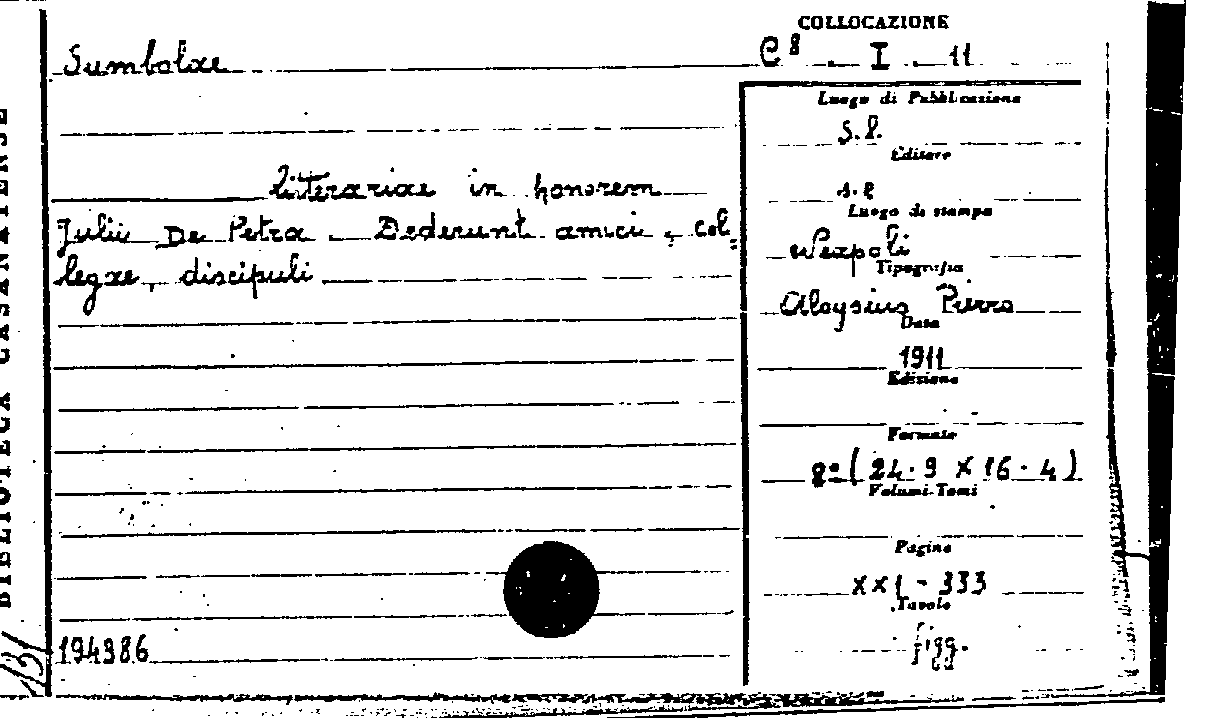 BIBLIOTECA CASANATENSE
COLLOCAZIONE
Sumbolae
C⁸ . I . 11
Luogo di Pubblicazione
s.l.
Editore
literariae in honorem
s.e
Luogo di stampa
Julii De Petra . Dederunt amici, col=
Neapoli
Tipografia
legae, discipuli
Aloysius Pierro
Data
1911
Edizione
Formato
8º ( 24.9 X 16.4 )
Volumi-Tomi
Pagine
XXI - 333
Tavole
figg.
194986